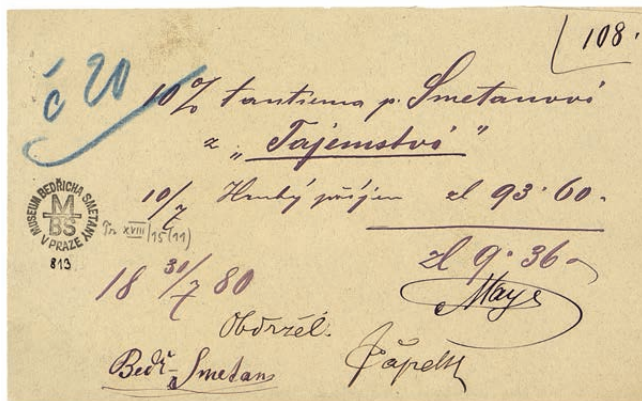 108.
č 20
10% tantiema p. Smetanovi
z „Tajemství"
10/7 Hrubý příjem zl 93·60
zl 9·36
MUSEUM BEDŘICHA SMETANY
V PRAZE
MBS
813
Tr. XVIII/15(11)
18 30/7 80
Maýr
Obdržel.
Bedř. Smetana